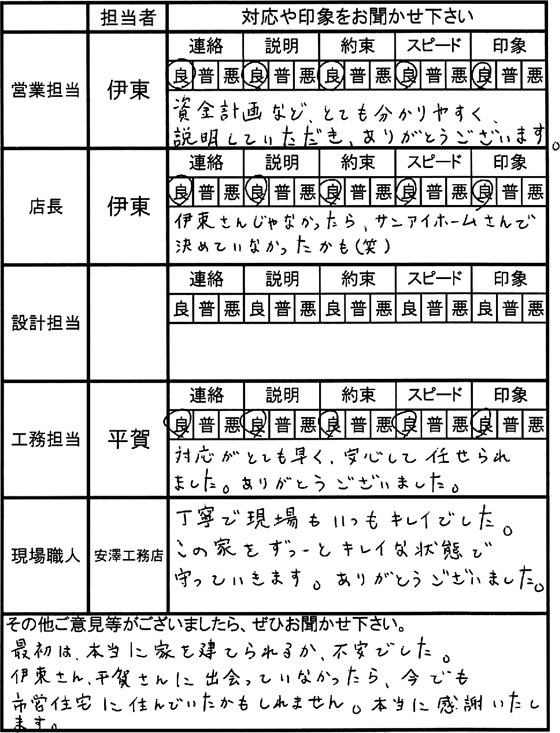 担当者 対応や印象をお聞かせ下さい
営業担当 伊東
連絡 説明 約束 スピード 印象
良 普 悪 良 普 悪 良 普 悪 良 普 悪 良 普 悪
資金計画など、とても分かりやすく、
説明していただき、ありがとうございます。
店長 伊東
連絡 説明 約束 スピード 印象
良 普 悪 良 普 悪 良 普 悪 良 普 悪 良 普 悪
伊東さんじゃなかったら、サンアイホームさんで
決めていなかったかも(笑)
設計担当
連絡 説明 約束 スピード 印象
良 普 悪 良 普 悪 良 普 悪 良 普 悪 良 普 悪
工務担当 平賀
連絡 説明 約束 スピード 印象
良 普 悪 良 普 悪 良 普 悪 良 普 悪 良 普 悪
対応がとても早く、安心して任せられ
ました。ありがとうございました。
現場職人 安澤工務店
丁寧で現場もいつもキレイでした。
この家をずっーとキレイな状態で
守っていきます。ありがとうございました。
その他ご意見等がございましたら、ぜひお聞かせ下さい。
最初は、本当に家を建てられるか、不安でした。
伊東さん、平賀さんに出会っていなかったら、今でも
市営住宅に住んでいたかもしれません。本当に感謝いたし
ます。